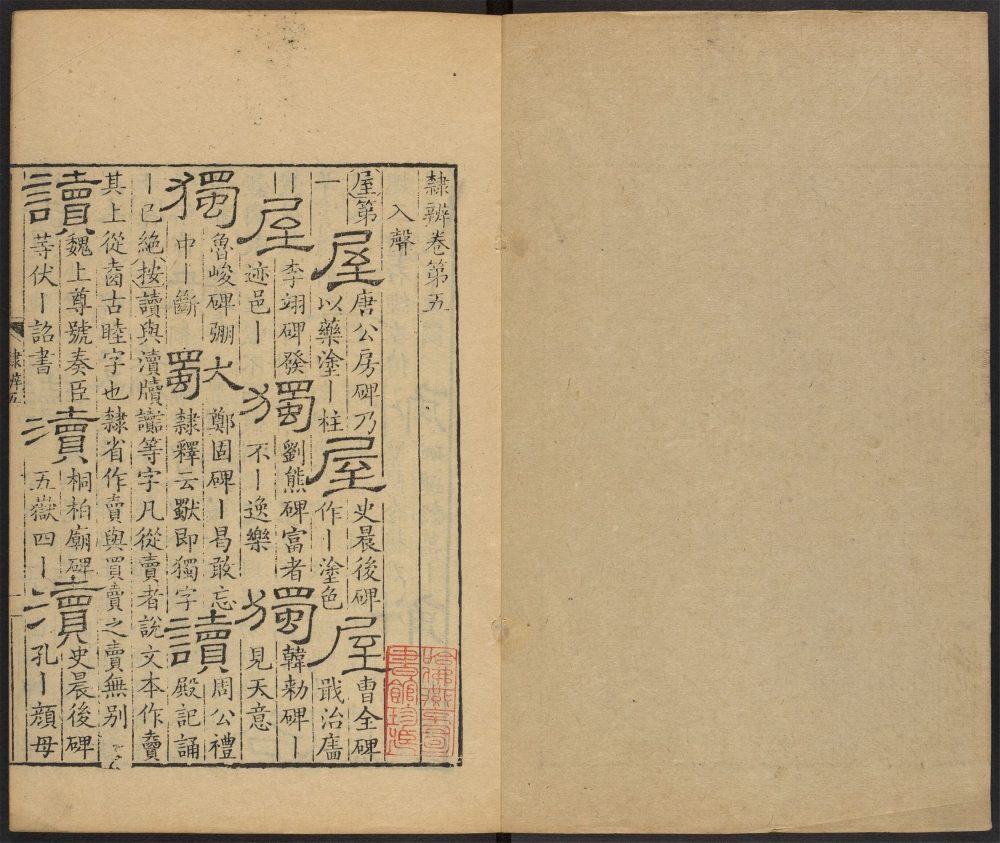 隸辨卷第五
入聲
屋第一
屋 唐公房碑乃以藥塗丨柱 屋 史晨後碑作丨塗色 屋 曹全碑戢治廧
丨 屋 李翊碑發迹邑丨 獨 劉熊碑富者不丨逸樂 獨 韓勑碑丨見天意
獨 魯峻碑弸中丨斷 獨 鄭固碑丨曷敢忘隸釋云即獨字 讀 周公禮殿記誦
丨已絶按讀與瀆牘讟等字凡從賣者說文本作賣
其上從古睦字也隸省作賣與買賣之賣無别
讀 魏上尊號奏臣等伏丨詔書 瀆 桐柏廟碑五嶽四丨 瀆 史晨後碑孔丨顔母
隸辨五
哈佛燕京圖書館珍藏